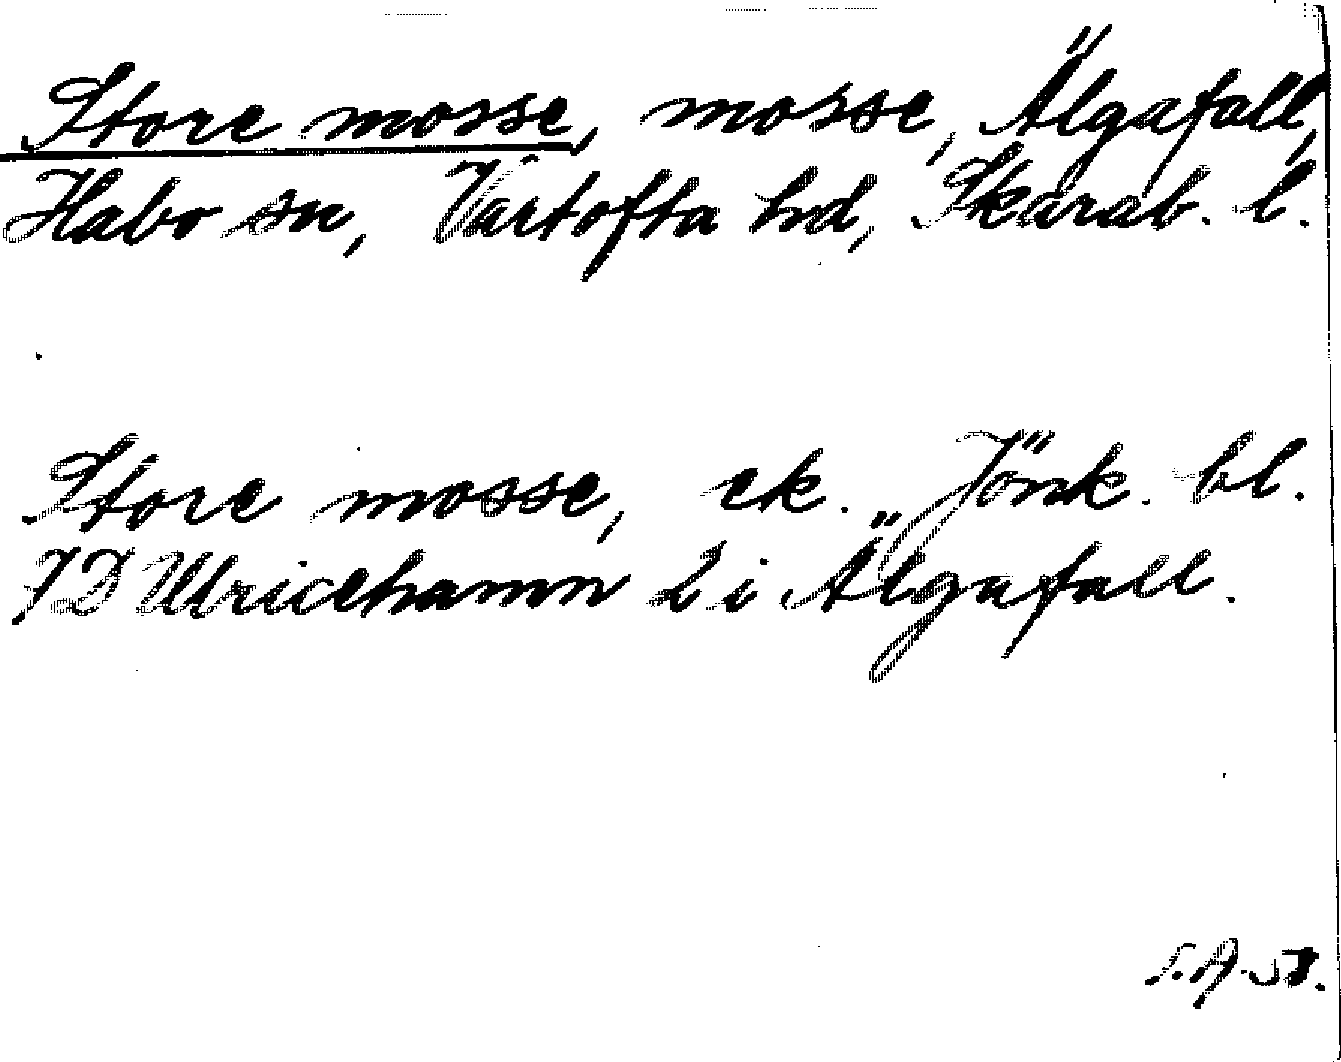 Store mosse, mosse, Älgafall,
Habo sn, Vartofta hd, Skarab. l.
Store mosse, ek. Jönk. bl.
7D Ulricehamn 2 i Älgafall.
S.A.